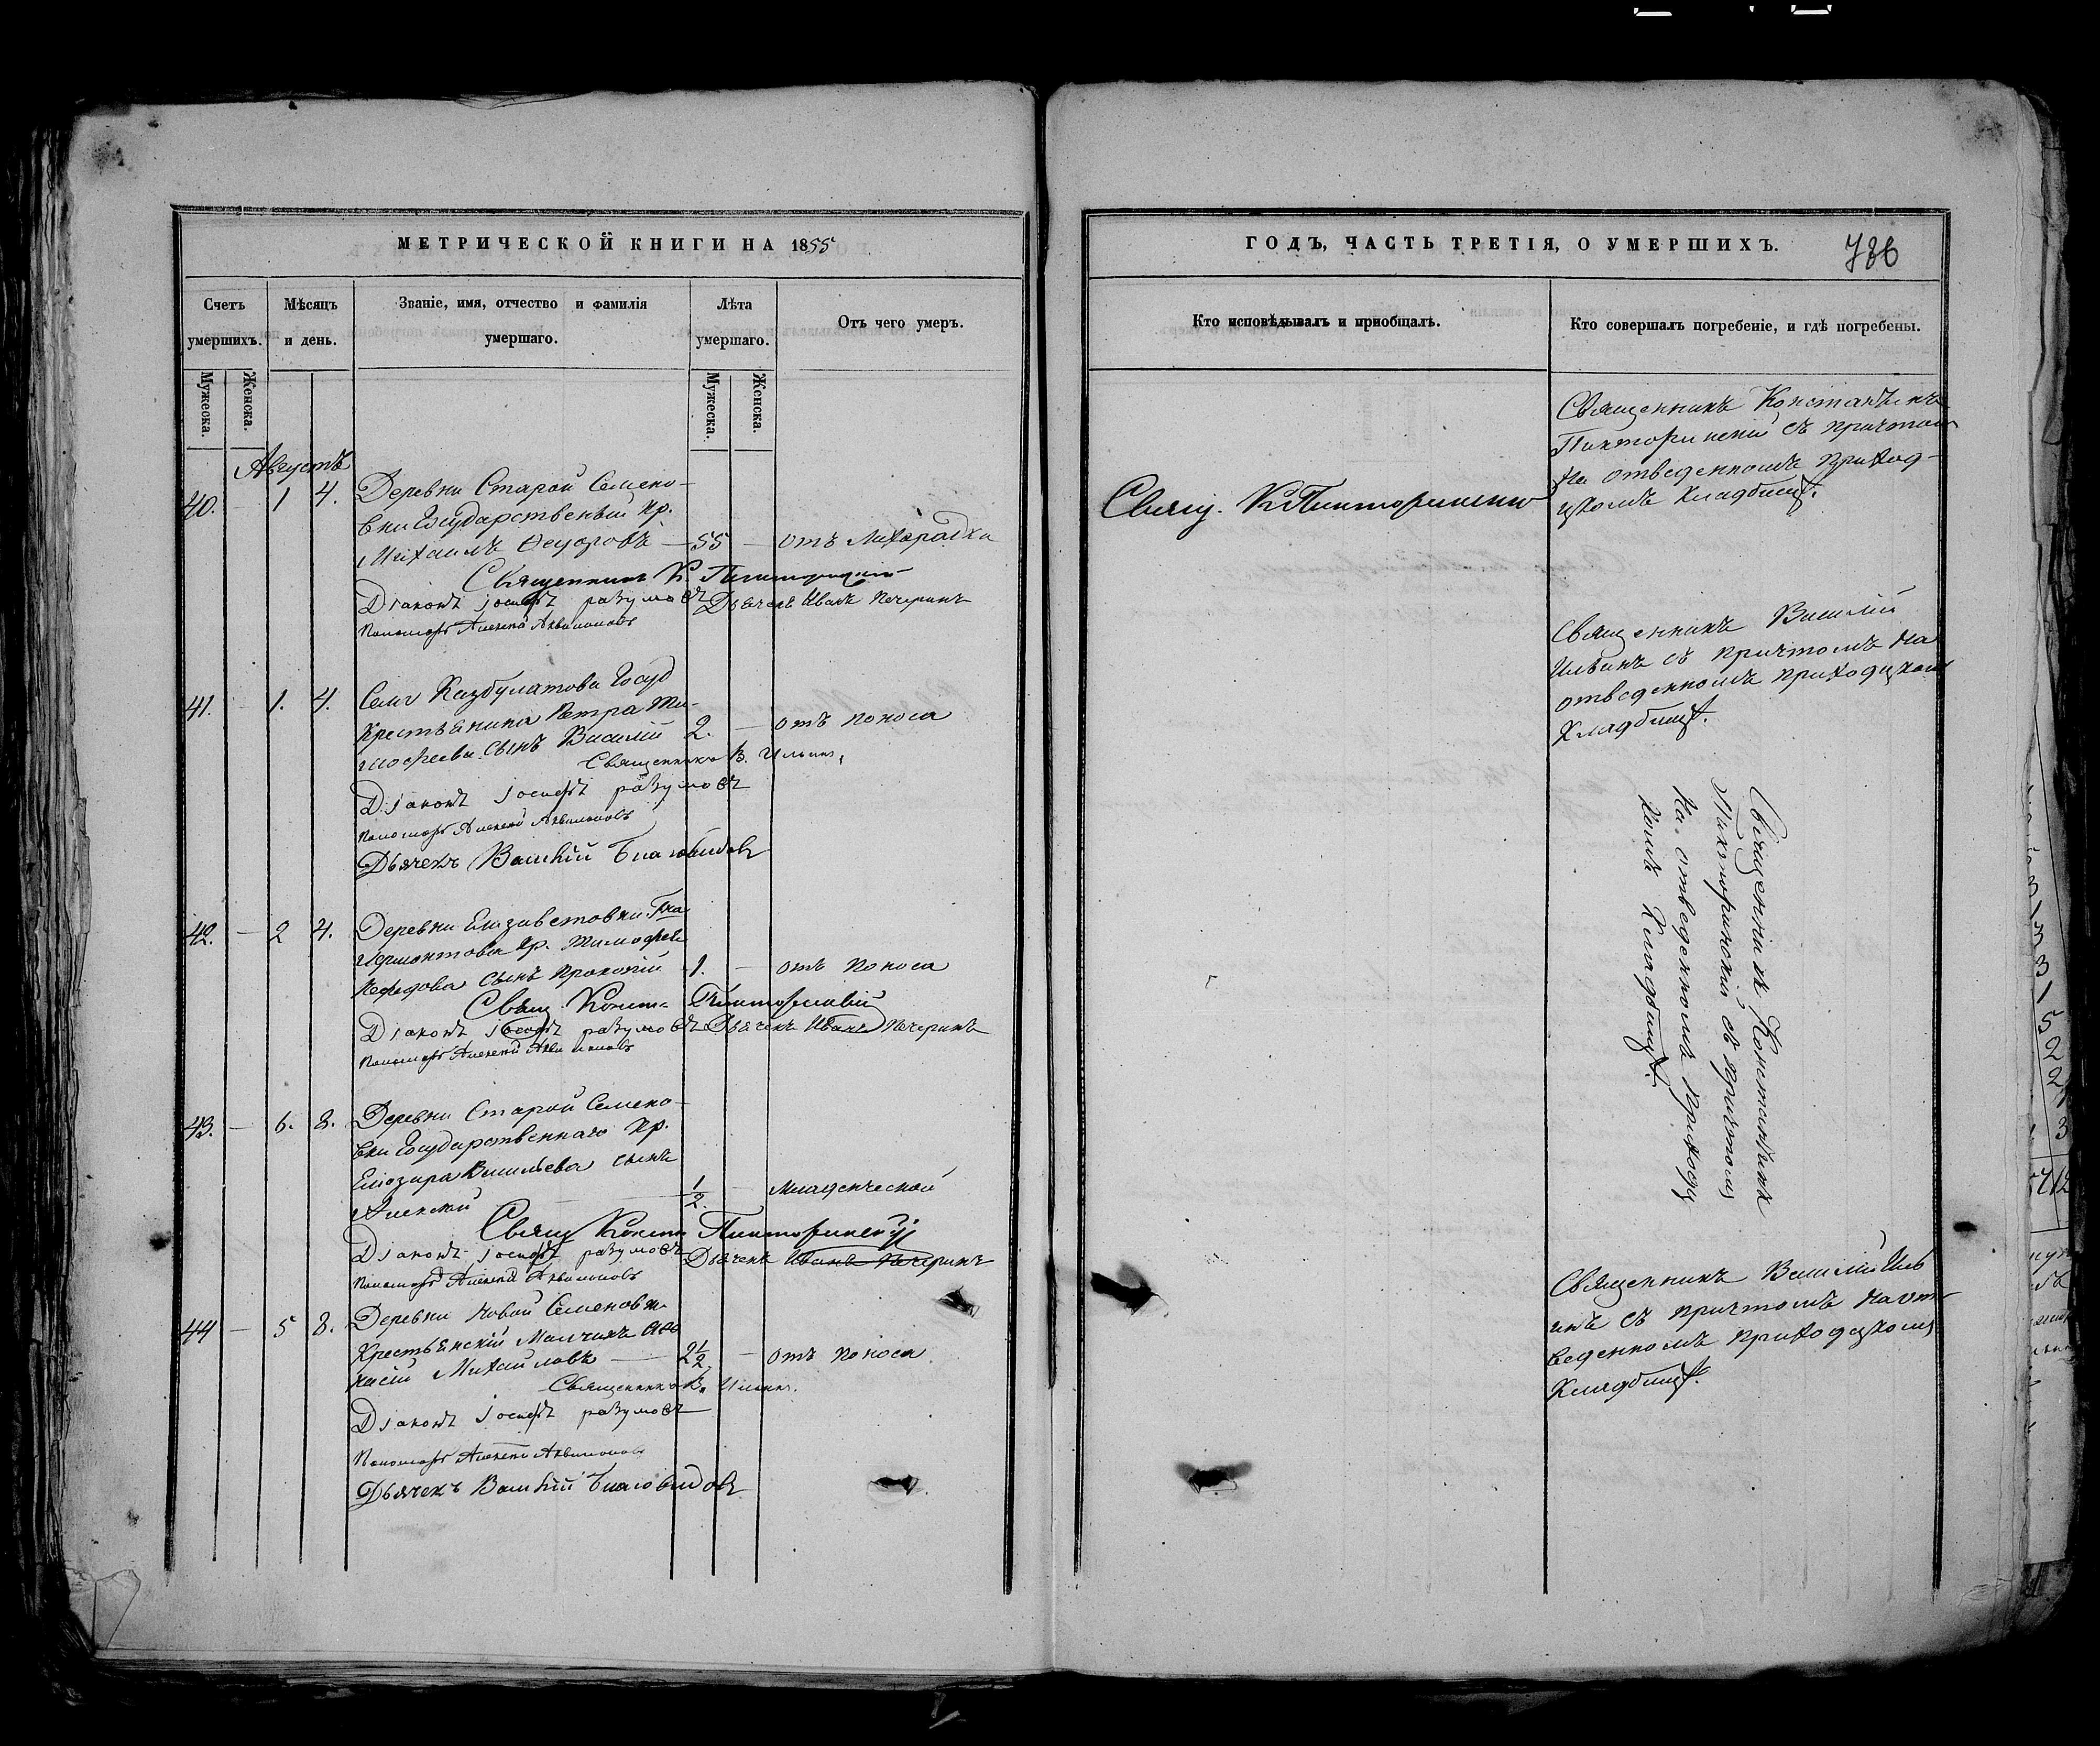 МЕТРИЧЕСКОЙ КНИГИ НА 1855
Счетъ умершихъ.
Мужеска.
Женска.
Мѣсяцъ и день.
Званіе, имя, отчество и фамилія умершаго.
Лѣта умершаго.
Мужеска.
Женска.
Отъ чего умеръ.
Августъ
40. 1 4. Деревни Старой Семено-
вки Государственный кр.
Михаилъ Ѳедоровъ — 55 — отъ лихорадки
Священникъ К.
Діаконъ Іосифъ разумовъ Дьячекъ Иванъ Печеринъ
Пономарь Алексей Аквилоновъ
41. — 1. 4. Села Казбулатова Госуд
Крестьянина Петра Ти-
мофеева сынъ Василій 2. — отъ поноса
Священникъ В. Ильинъ
Діаконъ Іосифъ разумовъ
Пономарь Алексей Аквилоновъ
Дьячекъ Василій Благовидовъ
42. — 2 4. Деревни Елизаветовки Гна
Лермонтова кр. Тимофея
сынъ Прокопій 1. — отъ поноса
Свящ. Конст.
Діаконъ Іосифъ разумовъ Дьячекъ Иванъ Печеринъ
Пономарь Алексей Аквилоновъ
43. — 6. 8. Деревни Старой Семено-
вки Государственнаго кр.
Елиозара Васильева сынъ
Алексей — 1/2. — Младенческой
Свящ Конст
Діаконъ Іосифъ разумовъ Дьячекъ Иванъ Печеринъ
Пономарь Алексей Аквилоновъ
44 — 5 8. Деревни Новой Семеновки
Крестьянскій Мальчикъ Афа
насій Михайловъ — 2 1/2. — отъ поноса
Священникъ В. Ильинъ.
Діаконъ Іосифъ разумовъ
Пономарь Алексей Аквилоновъ
Дьячекъ Василій Благовидовъ
ГОДЪ, ЧАСТЬ ТРЕТІЯ, О УМЕРШИХЪ.
786
Кто исповѣдывалъ и пріобщалъ.
Кто совершалъ погребеніе, и гдѣ погребены.
Свящ.
Священникъ Константинъ
съ причтомъ
на отведенномъ приход-
скомъ кладбищѣ.
Священникъ Василій
Ильинъ съ причтомъ на
отведенномъ приходскомъ
Кладбищѣ.
Священникъ Константинъ
съ причтомъ
На отведенномъ приходс
комъ Кладбищѣ.
Священникъ Василій Иль
инъ съ причтомъ на от-
веденномъ приходскомъ
Кладбищѣ.